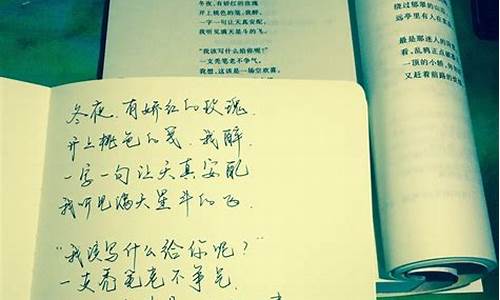 冬夜，有娇红的玫瑰
开上桃色的笺，我醉，
一字一句让天真安配
我听见满天星斗的飞，
“我该写什么给你呢？”
一支秃笔老不争气，
我想，这该是一场空欢喜。
绕过郁翠的山
远亭里有人在
最是那迷人的
看，乱鸦正点破
一顶的小轿，
又赶着前路的
冬夜，有娇红的玫瑰，
开上桃色的笺，我醉，
一字一句让天真安配
我听见满天星斗的飞，
“我该写什么给你呢？”
一支秃笔老不争气，